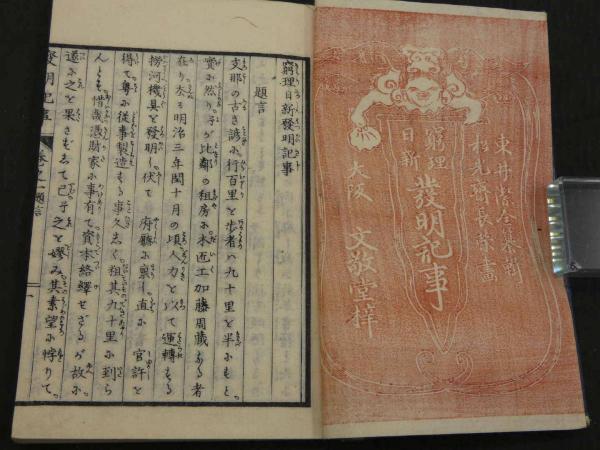 東井潔全纂輯
松光齋長�畫
窮理
日新
發明記事
大阪 文敬堂梓
窮理日新發明記事
題言
支那の古き諺に行百里と歩者ハ九十里を半バもと
實に然り予が比鄰の租房に木匠工加藤周藏なる者
在り本る明治三年閏十月の頃人力を以て運轉する
撈河機具を發明し伏て 府廳に稟し直に 官許と
得て專ら從事製造する事久しく粗其九十里に到ら
んとも惜哉憑財家に事有て資本絡繹せざるが故に
遂に之を果さずして已ぬ予之を嫪み其素望に悖りて
發明記事 卷之一題言 一